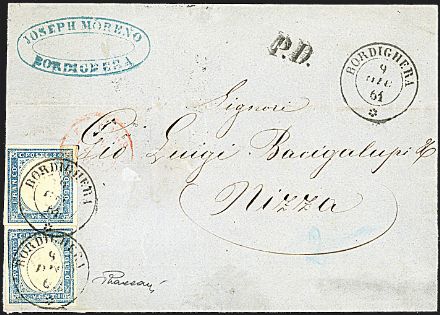 JOSEPH MORENO
BORDIGHERA
P.D.
BORDIGHERA
9
DIC
61
Signori
Gio Luigi Bacigalupi &
Nizza
BORDIGHERA
BORDIGHERA
9
DIC